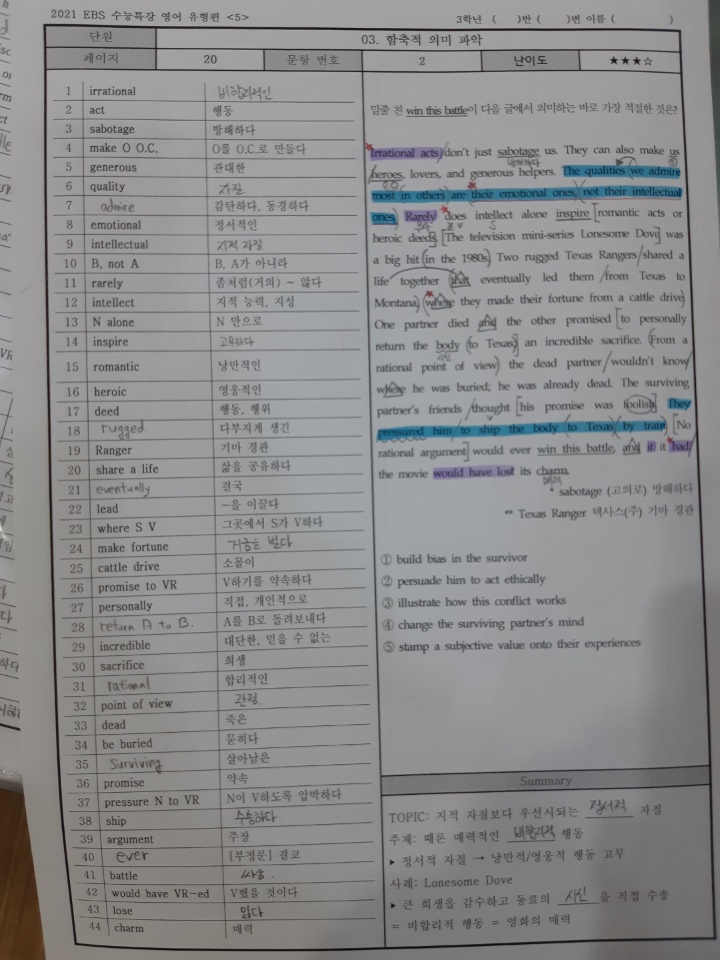 2021 EBS 수능특강 영어 유형편 <5>
3학년 ( )반 ( )번 이름 ( )
단원 03. 함축적 의미 파악
페이지 20 문항 번호 2 난이도 ★★★☆
1 irrational 비합리적인
2 act 행동
3 sabotage 방해하다
4 make O O.C. O를 O.C.로 만들다
5 generous 관대한
6 quality 자질
7 admire 감탄하다, 동경하다
8 emotional 정서적인
9 intellectual 지적 자질
10 B, not A B, A가 아니라
11 rarely 좀처럼(거의) ~ 않다
12 intellect 지적 능력, 지성
13 N alone N 만으로
14 inspire 고무하다
15 romantic 낭만적인
16 heroic 영웅적인
17 deed 행동, 행위
18 rugged 다부지게 생긴
19 Ranger 기마 경관
20 share a life 삶을 공유하다
21 eventually 결국
22 lead ~을 이끌다
23 where S V 그곳에서 S가 V하다
24 make fortune 거금을 벌다
25 cattle drive 소몰이
26 promise to VR V하기를 약속하다
27 personally 직접, 개인적으로
28 return A to B. A를 B로 돌려보내다
29 incredible 대단한, 믿을 수 없는
30 sacrifice 희생
31 rational 합리적인
32 point of view 관점.
33 dead 죽은
34 be buried 묻히다
35 surviving 살아남은
36 promise 약속
37 pressure N to VR N이 V하도록 압박하다
38 ship 수송하다
39 argument 주장
40 ever [부정문] 결코
41 battle 싸움.
42 would have VR-ed V했을 것이다
43 lose 잃다
44 charm 매력
밑줄 친 win this battle이 다음 글에서 의미하는 바로 가장 적절한 것은?
Irrational acts don't just sabotage us. They can also make us
방해하다
heroes, lovers, and generous helpers. The qualities we admire
most in others are their emotional ones, not their intellectual
ones. Rarely does intellect alone inspire romantic acts or
heroic deeds. The television mini-series Lonesome Dove was
a big hit in the 1980s. Two rugged Texas Rangers shared a
life together that eventually led them from Texas to
Montana, where they made their fortune from a cattle drive.
One partner died and the other promised to personally
return the body to Texas, an incredible sacrifice. From a
시신
rational point of view, the dead partner wouldn't know
where he was buried; he was already dead. The surviving
partner's friends thought his promise was foolish. They
pressured him to ship the body to Texas by train. No
rational argument would ever win this battle, and if it had,
the movie would have lost its charm.
매력
* sabotage (고의로) 방해하다
** Texas Ranger 텍사스(주) 기마 경관
① build bias in the survivor
② persuade him to act ethically
③ illustrate how this conflict works
④ change the surviving partner's mind
⑤ stamp a subjective value onto their experiences
Summary
TOPIC: 지적 자질보다 우선시되는 정서적 자질
주제: 때론 매력적인 비합리적 행동
▸ 정서적 자질 → 낭만적/영웅적 행동 고무
사례: Lonesome Dove
▸ 큰 희생을 감수하고 동료의 시신 을 직접 수송
= 비합리적 행동 = 영화의 매력